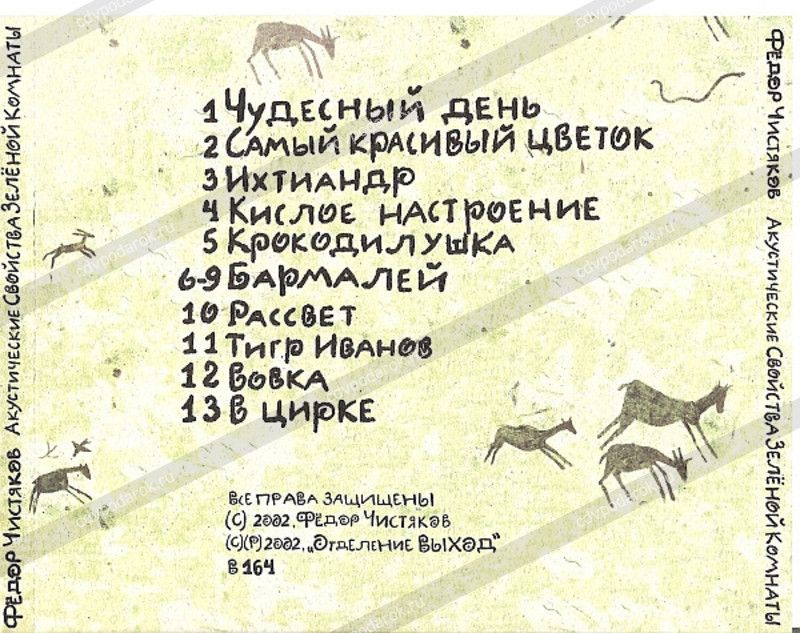 Фёдор Чистяков Акустические Свойства Зелёной Комнаты
1 Чудесный день
2 Самый красивый цветок
3 Ихтиандр
4 Кислое настроение
5 Крокодилушка
6-9 Бармалей
10 Рассвет
11 Тигр Иванов
12 Вовка
13 В цирке
Все права защищены
(С) 2002, Фёдор Чистяков
(С)(Р) 2002, „Отделение ВЫХОД"
В 164
Фёдор Чистяков Акустические Свойства Зелёной Комнаты
cdvpodarok.ru